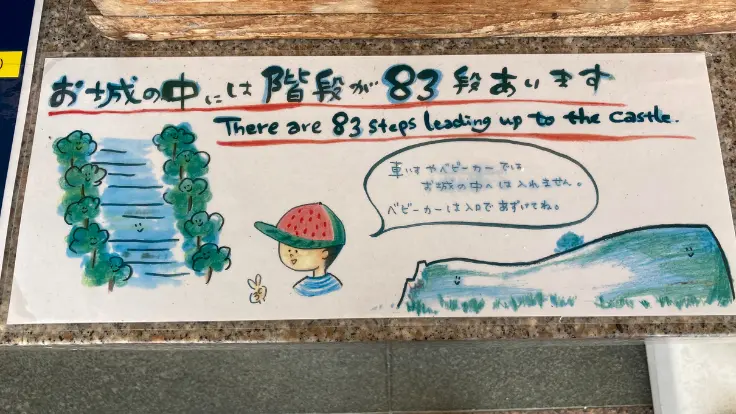 お城の中には階段が83段あります
There are 83 steps leading up to the castle.
車いすやベビーカーでは
お城の中へは入れません。
ベビーカーは入口であずけてね。